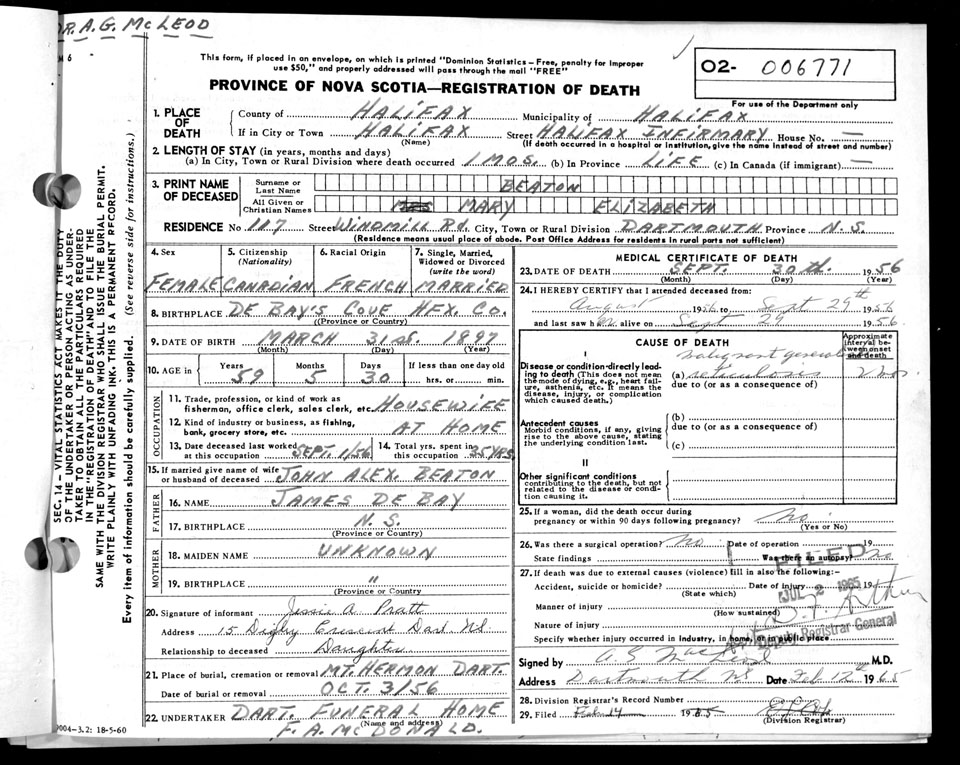 DR. A.G. McLEOD
M 6
This form, if placed in an envelope, on which is printed "Dominion Statistics - Free, penalty for improper
use $50," and properly addressed will pass through the mail "FREE"
PROVINCE OF NOVA SCOTIA—REGISTRATION OF DEATH
O2- 006771
For use of the Department only
1. PLACE OF DEATH
County of HALIFAX Municipality of HALIFAX
If in City or Town HALIFAX Street HALIFAX INFIRMARY House No. —
(Name) (If death occurred in a hospital or institution, give the name instead of street and number)
2. LENGTH OF STAY (in years, months and days)
(a) In City, Town or Rural Division where death occurred 1 MOS. (b) In Province LIFE (c) In Canada (if immigrant) —
3. PRINT NAME OF DECEASED
Surname or Last Name BEATON
All Given or Christian Names MRS MARY ELIZABETH
RESIDENCE No 117 Street WINDMILL RD. City, Town or Rural Division DARTMOUTH Province N.S.
(Residence means usual place of abode. Post Office Address for residents in rural parts not sufficient)
4. Sex
FEMALE
5. Citizenship (Nationality)
CANADIAN
6. Racial Origin
FRENCH
7. Single, Married, Widowed or Divorced (write the word)
MARRIED
8. BIRTHPLACE DE BAY'S COVE HFX. CO.
(Province or Country)
9. DATE OF BIRTH MARCH 31st. 1897
(Month) (Day) (Year)
10. AGE in
Years 59 Months 5 Days 30 If less than one day old
hrs. or min.
OCCUPATION
11. Trade, profession, or kind of work as
fisherman, office clerk, sales clerk, etc. HOUSEWIFE
12. Kind of industry or business, as fishing,
bank, grocery store, etc. AT HOME
13. Date deceased last worked at this occupation SEPT. 1/56
14. Total yrs. spent in this occupation 35 YRS.
15. If married give name of wife
or husband of deceased JOHN ALEX. BEATON
FATHER
16. NAME JAMES DE BAY
17. BIRTHPLACE N.S.
(Province or Country)
MOTHER
18. MAIDEN NAME UNKNOWN
19. BIRTHPLACE "
(Province or Country)
20. Signature of informant Jessie A. Pratt
Address 15 Digby Crescent Dart NS
Relationship to deceased Daughter
21. Place of burial, cremation or removal MT. HERMON DART.
Date of burial or removal OCT. 3/56
22. UNDERTAKER DART. FUNERAL HOME
(Name and address)
F. A. McDONALD.
MEDICAL CERTIFICATE OF DEATH
23. DATE OF DEATH SEPT. 30th. 1956
(Month) (Day) (Year)
24. I HEREBY CERTIFY that I attended deceased from:
August 1956 to Sept 29th 1956
and last saw her alive on Sept 29 1956.
CAUSE OF DEATH
Approximate interval between onset and death
I
Disease or condition directly leading to death (This does not mean
the mode of dying, e.g., heart failure, asthenia, etc. It means the
disease, injury, or complication
which caused death.)
malignant general
(a) reticulosis 2 mos.
due to (or as a consequence of)
Antecedent causes
Morbid conditions, if any, giving
rise to the above cause, stating
the underlying condition last.
(b)
due to (or as a consequence of)
(c)
II
Other significant conditions
contributing to the death, but not
related to the disease or condition causing it.
25. If a woman, did the death occur during
pregnancy or within 90 days following pregnancy? no
(Yes or No)
26. Was there a surgical operation? no Date of operation 19
State findings Was there an autopsy? no
FILED
27. If death was due to external causes (violence) fill in also the following:—
Accident, suicide or homicide? Date of injury 19
(State which)
JUL 2 1965
Manner of injury
(How sustained)
Nature of injury
Deputy Registrar General
Specify whether injury occurred in industry, in home, or in public place
Signed by A. G. MacLeod M.D.
Address Dartmouth NS Date Feb 12th 1965
28. Division Registrar's Record Number
29. Filed Feb 14 1965
(Division Registrar)
SEC. 14 — VITAL STATISTICS ACT MAKES IT THE DUTY
OF THE UNDERTAKER OR PERSON ACTING AS UNDERTAKER TO OBTAIN ALL THE PARTICULARS REQUIRED
IN THE "REGISTRATION OF DEATH" AND TO FILE THE
SAME WITH THE DIVISION REGISTRAR WHO SHALL ISSUE THE BURIAL PERMIT.
WRITE PLAINLY WITH UNFADING INK - THIS IS A PERMANENT RECORD.
Every item of information should be carefully supplied. (See reverse side for instructions.)
9004-3.2: 18-5-60